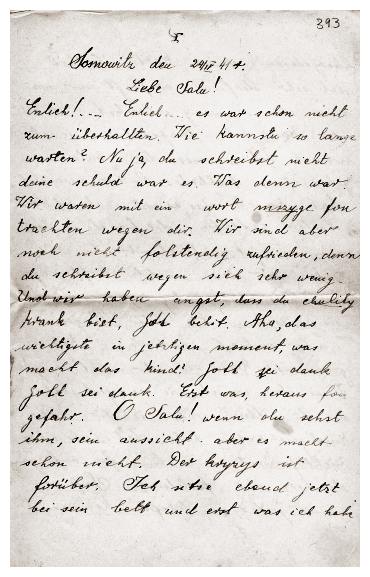 393
I
Sosnowitz den 24/II 41 r.
Liebe Salu!
Enlich!.... Enlich.... es war schon nicht
zum überhallten. Wie kannstu so lange
warten? Nu ja, du schreibst nicht
deine schuld war es. Was denn war.
Wir waren mit ein wort fon
trachten wegen dir. Wir sind aber
noch nicht folstendig zufrieden, denn
du schreibst wegen sich sehr wenig.
Und wir haben angst, dass du
krank bist, Gott behit. Aha, das
wichtigste in jetztigen moment, was
macht das Kind? Gott sei dank
Gott sei dank. Erst was, heraus fon
gefahr. O Salu! wenn du sehst
ihm, sein aussicht. aber es macht
schon nicht. Der kryzys ist
forüber. Ich sitze ebend jetzt
bei sein bett und erst was ich habe